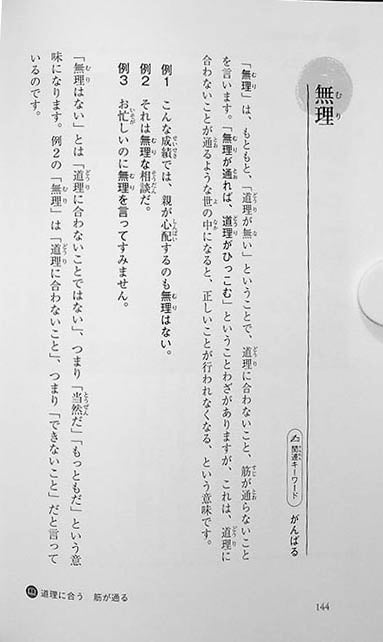 無理
むり
関連キーワード がんばる
「無理」は、もともと、「道理が無い」ということで、道理に合わないこと、筋が通らないこと
を言います。「無理が通れば、道理がひっこむ」ということわざがありますが、これは、道理に
合わないことが通るような世の中になると、正しいことが行われなくなる、という意味です。
例1 こんな成績では、親が心配するのも無理はない。
例2 それは無理な相談だ。
例3 お忙しいのに無理を言ってすみません。
「無理はない」とは「道理に合わないことではない」、つまり「当然だ」「もっともだ」という意
味になります。例2の「無理」は「道理に合わないこと」、つまり「できないこと」だと言って
いるのです。
道理に合う 筋が通る
144